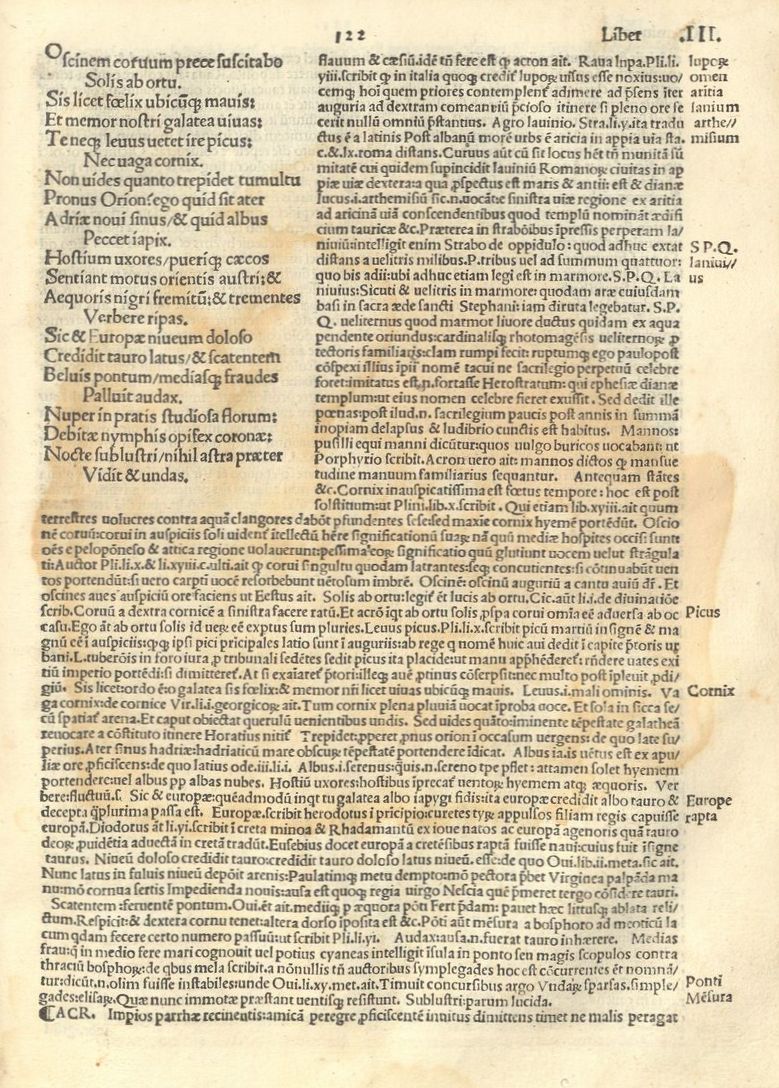 122 Liber .III.
Oscinem coruum prece suscitabo
Solis ab ortu.
Sis licet fœlix ubicũq; mauis:
Et memor nostri galatea uiuas:
Teneq; leuus uetet ire picus:
Nec uaga cornix.
Non uides quanto trepidet tumultu
Pronus Orion? ego quid sit ater
Adriæ noui sinus/& quid albus
Peccet iapix.
Hostium uxores/pueriq; cæcos
Sentiant motus orientis austri:&
Aequoris nigri fremitũ:& trementes
Verbere ripas.
Sic & Europæ niueum doloso
Credidit tauro latus/& scatentem
Beluis pontum/mediasq; fraudes
Palluit audax.
Nuper in pratis studiosa florum:
Debitæ nymphis opifex coronæ:
Nocte sublustri/nihil astra præter
Vidit & undas.
flauum & cæsiũ.idẽ tñ fere est q̃ acron ait. Raua lupa.Pli.li.
yiii.scribit q̃ in italia quoq; credit̃ lupoꝝ uisus esse noxius:uo/
cemq; hoĩ quem priores contemplent̃ adimere ad p̃sens iter
auguria ad dextram comeantiũ p̃ciso itinere si pleno ore se
cerit nullũ omniũ p̃stantius. Agro lauinio. Stra.li.y.ita tradu
ctus ẽ a latinis Post albanũ morẽ urbs ẽ aricia in appia uia sta.
c.& lx.roma distans. Curuus aũt cũ sit locus hẽt tñ munitã sũ
mitatẽ cui quidem supincidit lauiniũ Romanoꝝ ciuitas in ap
piæ uiæ dextera:a qua ꝓspectus est maris & antii: est & dianæ
lucus.i.arthemisiũ sic.n.uocãt:e sinistra uiæ regione ex aritia
ad aricinã uiã conscendentibus quod templũ nominãt ædifi
cium tauricæ &c. Præterea in strabõibus ĩpressis perperam la/
niuiũ:intelligit enim Strabo de oppidulo: quod adhuc extat
distans a uelitris milibus.P.tribus uel ad summum quattuor:
quo bis adii:ubi adhuc etiam legi est in marmore.S.P.Q. La
niuius: Sicuti & uelitris in marmore: quodam aræ cuiusdam
basi in sacra æde sancti Stephani: iam diruta legebatur. S.P.
Q. ueliternus quod marmor liuore ductus quidam ex aqua
pendente oriundus: cardinalisq; rhotomagẽsis ueliternoꝝ ꝓ
tectoris familiaris:clam rumpi fecit: ruptumq; ego paulopost
cõspexi illius ĩpii nomẽ tacui ne sacrilegio perpetuũ celebre
foret:imitatus est.n.fortasse Herostratum: qui ephesiæ dianæ
templum:ut eius nomen celebre fieret exussit. Sed dedit ille
pœnas:post ilud.n. sacrilegium paucis post annis in summã
inopiam delapsus & ludibrio cunctis est habitus. Mannos:
pusilli equi manni dicũtur:quos uulgo buricos uocabant: ut
Porphyrio scribit. Acron uero ait: mannos dictos q̃ mansue
tudine manuum familiarius sequantur. Antequam stãtes
&c. Cornix inauspicatissima est fœtus tempore: hoc est post
solstitium:ut Plini.lib.x.scribit. Qui etiam lib.xyiii.ait quum
luporꝫ
omen
aritia
lanium
arthe//
misium
S P.Q.
laniui//
us
terrestres uolucres contra aquã clangores dabõt p̃fundentes sese:sed maxie cornix hyemẽ portẽdũt. Oscio
nẽ coruũ:corui in auspiciis soli uident̃ ĩtellectũ hẽre significationũ suaꝝ nã quũ mediæ hospites occisi sunt:
oẽs e pelopõneso & attica regione uolauerunt:pessima eoꝝ significatio quũ glutiunt uocem uelut strãgula
ti:Auctor Pli.li.x.& li.xyiii.c.ulti.ait q̃ corui singultu quodam latrantes:seq; concutientes:si cõtinuabũt uen
tos portendũt:si uero carpti uocẽ resorbebunt uẽtosum imbrẽ. Oscinẽ: oscinũ auguriũ a cantu auiũ dr̃. Et
oscines aues auspiciũ ore faciens ut Festus ait. Solis ab ortu:legit̃ ẽt lucis ab ortu. Cic.aũt li.i.de diuinatiõe
scrib. Coruũ a dextra cornicẽ a sinistra facere ratũ. Et acrõ ĩqt ab ortu solis ꝓspa corui omĩa eẽ aduersa ab oc
casu. Ego ãt ab ortu solis id ueꝝ eẽ exptus sum pluries. Leuus picus. Pli.li.x.scribit picũ martiũ insignẽ & ma
gnũ cẽ ĩ auspiciis:q;q; ipsi pici pricipales latio sunt ĩ auguriis:ab rege q nomẽ huic aui dedit ĩ capite p̃toris ur
bani. L.tuberõis in foro iura ꝓ tribunali sedẽtes sedit picus ita placide:ut manu app̃hẽderet̃:rñdere uates exi
tiũ imperio portẽdi:si dimitteret̃. At si exaiaret̃ p̃tori:illeq; auẽ ꝓtinus cõserpsit:nec multo post ĩpleuit ꝓdi/
giũ. Sis licet:ordo ẽ:o galatea sis fœlix:& memor nr̃i licet uiuas ubicũq; mauis. Leuus.i.mali ominis. Va
ga cornix:de cornice Vir.li.i.georgicoꝝ ait. Tum cornix plena pluuiã uocat ĩproba uoce. Et sola in sicca se/
cũ spatiat̃ arena. Et caput obiectat querulũ uenientibus undis. Sed uides quãto:iminente tẽpestate galatheã
reuocare a cõstituto itinere Horatius nitit̃ Trepidet:ꝓperet:pnus orion ĩ occasum uergens: de quo late su/
perius. Ater sinus hadriæ:hadriaticũ mare obscuꝝ tẽpestatẽ portendere ĩdicat. Albus ia.is uẽtus est ex apu/
liæ ore ꝓficiscens:de quo latius ode.iii.li.i. Albus.i.serenus:quis.n.sereno tpe pflet: attamen solet hyemem
portendere:uel albus pp albas nubes. Hostiũ uxores: hostibus ĩprecat̃ uentoꝝ hyemem atq; æquoris. Ver
bere:fluctuũ.s. Sic & europæ: quẽadmodũ inqt tu galatea albo iapygi fidis:ita europæ credidit albo tauro &
decepta q̃plurima passa est. Europæ.scribit herodotus ĩ pricipio:curetes tyꝝ appulsos filiam regis capuisse
europã. Diodotus ãt li.yi.scribit ĩ creta minoa & Rhadamantũ ex ioue natos ac europã agenoris quã tauro
deoꝝ ꝓuidẽtia aduectã in cretã tradũt. Eusebius docet europã a cretẽsibus raptã fuisse naui:cuius fuit ĩsigne
taurus. Niueũ doloso credidit tauro:credidit tauro doloso latus niueũ. esse:de quo Oui.lib.ii.meta.sic ait.
Nunc latus in fuluis niueũ depõit arenis:Paulatimq; metu dempto:mõ pectora p̃bet Virginea palpãda ma
nu:mõ cornua sertis Impedienda nouis:ausa est quoq; regia uirgo Nescia quẽ p̃meret tergo cõsidere tauri.
Scatentem: feruentẽ pontum. Oui.ẽt ait. mediiq; p æquora põti Fert p̃dam: pauet hæc littusq; ablata reli/
ctum. Respicit: & dextera cornu tenet:altera dorso ĩposita est &c. Põti aũt mẽsura a bosphoro ad meoticũ la
cum qdam fecere certo numero passuũ:ut scribit Pli.li.yi. Audax:ausa.n.fuerat tauro inhærere. Medias
frau:q̃ in medio fere mari cognouit uel potius cyaneas intelligit ĩsula in ponto seu magis scopulos contra
thraciũ bosphoꝝ: de qbus mela scribit.a nõnullis tñ auctoribus symplegades hoc est cõcurrentes ẽt nominã/
tur:dicũt.n.olim fuisse instabiles:unde Oui.li.xy.met.ait. Timuit concursibus argo Vndaꝝ sparsas.simple/
gades:elisaꝝ. Quæ nunc immotæ præstant uentisq; resistunt. Sublustri: parum lucida.
⸿ACR. Impios parrhæ recinentis:amicã peregre ꝓficiscentẽ inuitus dimittens timet ne malis peragat
Picus
Cornix
Europe
rapta
Ponti
Mẽsura